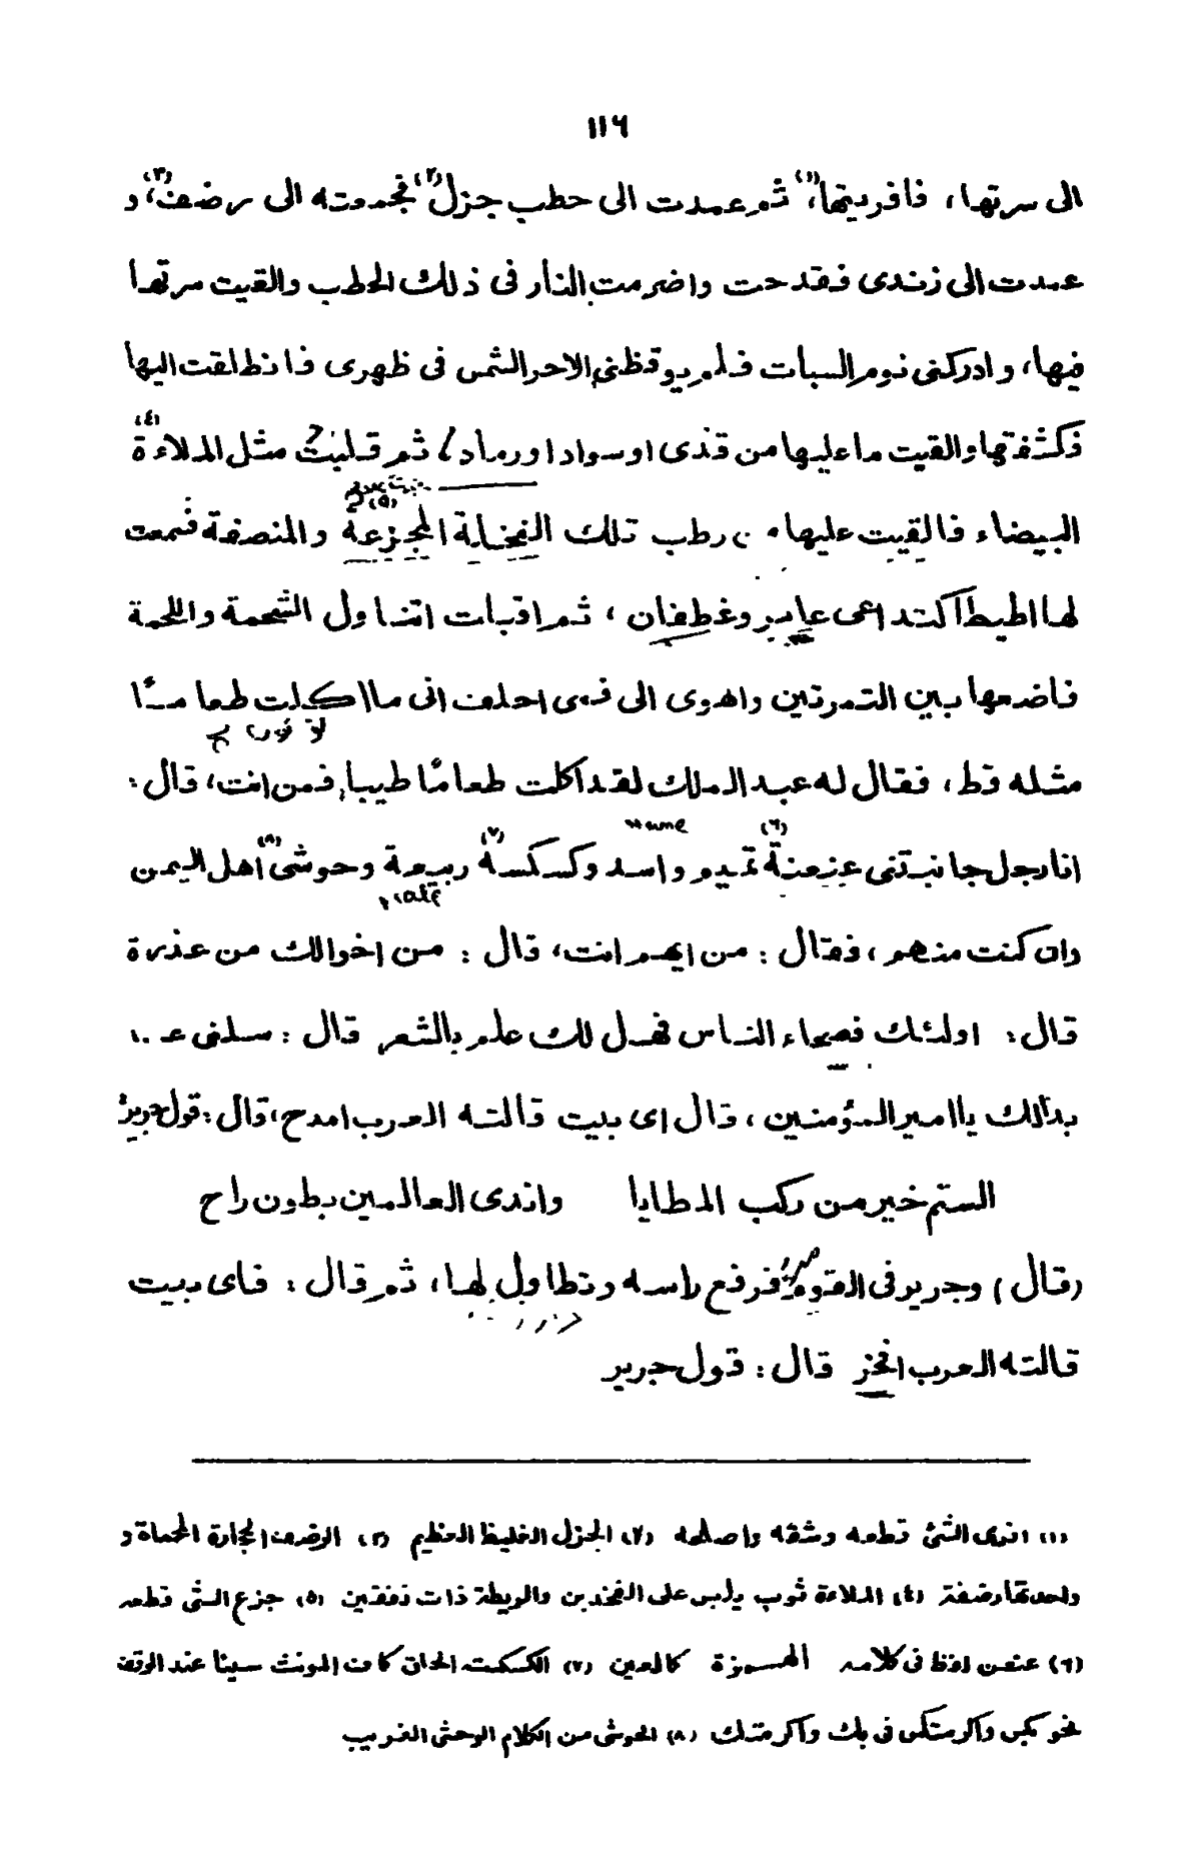 ١١٦
الى سرتها، فافريتها(١)، ثم عمدت الى حطب جزل(٢) فجمعته الى رضف(٣)، و
عمدت الى زندى فقدحت واضرمت النأر فى ذلك الحطب والقيت سرتها
فيها، وادركنى نوم السبات فلم يوقظنى الاحر الشمس فى ظهرى فانطلقت اليها
فكشفتها والقيت ما عليها من قذى او سواد او رماد، ثم قلبت مثل الملاءة(٤)
البيضاء فالقيت عليها من رطب تلك النخلة المجزعة(٥) والمنصفة فسمعت
لها اطيطاً كتداعى عامر وغطفان، ثم اقبلت اتناول الشحمة واللحمة
فاضعها بين التمرتين واهوى الى فمى احلف انى ما اكلت طعامًا
مثله قط، فقال له عبد الملك لقد اكلت طعامًا طيبا، فمن انت، قال:
name
انا رجل جانبتنى عنعنة(٦) تميم واسد وكسكسة(٧) ربيعة وحوشى(٨) اهل اليمن
وان كنت منهم، فقال: من ايهم انت، قال: من اخوالك من عذرة
قال: اولئك فصحاء الناس فهل لك علم بالشعر قال: سلنى عـ..ا
بدألك يا امير المؤمنين، قال اى بيت قالته العرب امدح، قال: قول جرير
الستم خير من ركب المطايا واندى العالمين بطون راح
(قال) وجرير فى القوم فرفع راسه وتطاول لها، ثم قال: فاى بيت
قالته العرب افخر قال: قول جرير
(١) افرى الشئ قطعه وشقه واصلحه (٢) الجزل الغليظ العظيم (٣) الرضف الحجارة المحماة و
واحدتها رضفة (٤) الملاءة ثوب يلبس على الفخذين والريطة ذات لفقتين (٥) جزع الشى قطعه
(٦) عنعن لفظ فى كلامه الهمزة كالعين (٧) الكسكسة الحاق كاف المونث سينا عند الوقف
نحو بكس واكرمتكس فى بك واكرمتك (٨) الحوشى من الكلام الوحشى الغريب